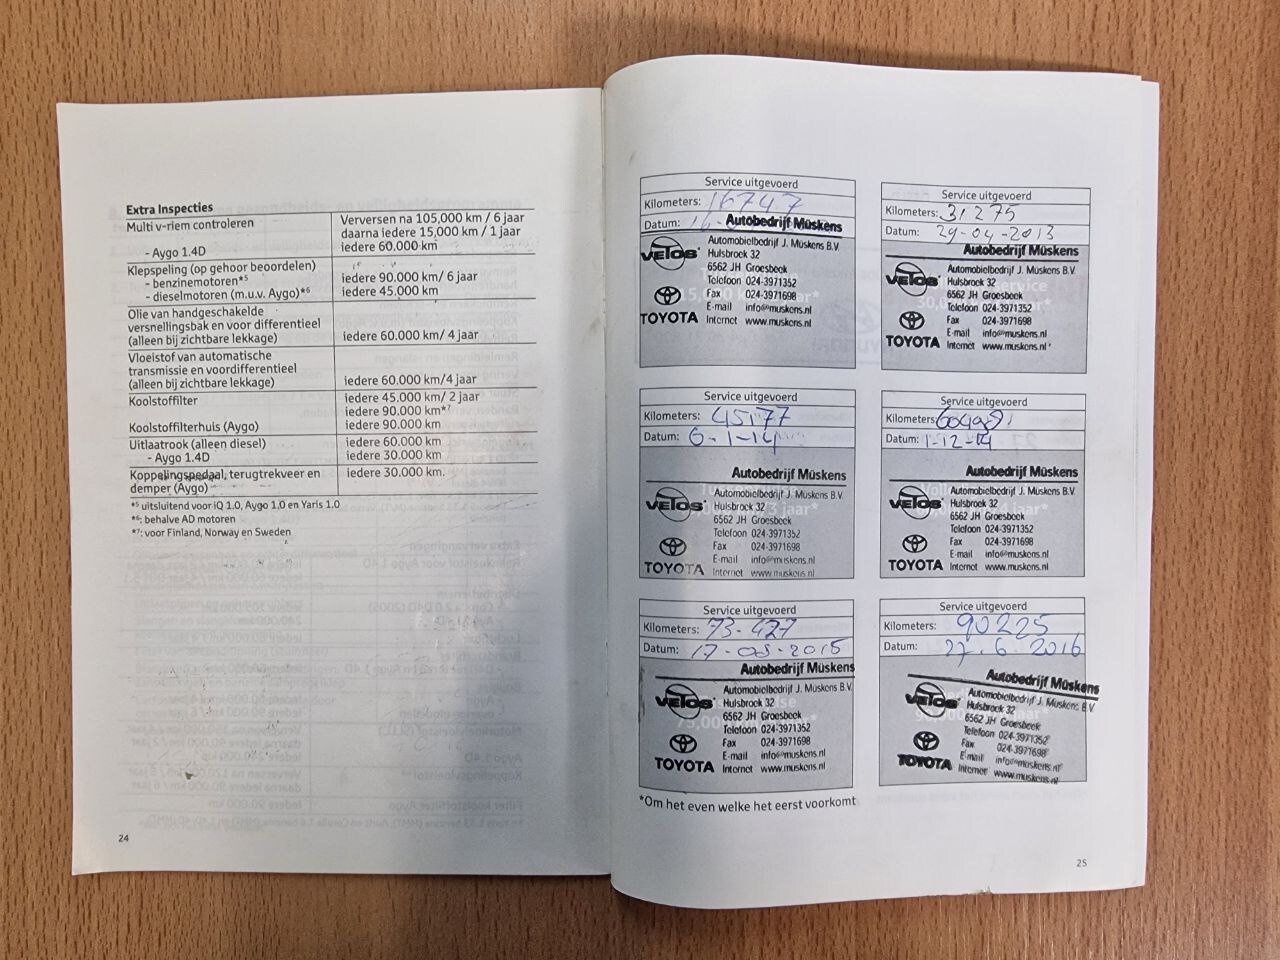 Extra Inspecties
Multi v-riem controleren
- Aygo 1.4D
Verversen na 105,000 km / 6 jaar
daarna iedere 15,000 km / 1 jaar
iedere 60.000 km
Klepspeling (op gehoor beoordelen)
- benzinemotoren*⁵
- dieselmotoren (m.u.v. Aygo)*⁶
iedere 90.000 km/ 6 jaar
iedere 45.000 km
Olie van handgeschakelde
versnellingsbak en voor differentieel
(alleen bij zichtbare lekkage)
iedere 60.000 km/ 4 jaar
Vloeistof van automatische
transmissie en voordifferentieel
(alleen bij zichtbare lekkage)
iedere 60.000 km/4 jaar
Koolstoffilter
Koolstoffilterhuis (Aygo)
iedere 45.000 km/ 2 jaar
iedere 90.000 km*⁷
iedere 90.000 km
Uitlaatrook (alleen diesel)
- Aygo 1.4D
iedere 60.000 km
iedere 30.000 km
Koppelingspedaal, terugtrekveer en
demper (Aygo)
iedere 30.000 km.
*⁵ uitsluitend voor iQ 1.0, Aygo 1.0 en Yaris 1.0
*⁶: behalve AD motoren
*⁷: voor Finland, Norway en Sweden
24
Service uitgevoerd
Kilometers: 16747
Datum: 16-
Autobedrijf Müskens
Automobielbedrijf J. Müskens B.V.
Hulsbroek 32
6562 JH Groesbeek
Telefoon 024-3971352
Fax 024-3971698
E-mail info@muskens.nl
Internet www.muskens.nl
VETOS
TOYOTA
Service uitgevoerd
Kilometers: 31275
Datum: 29-04-2013
Autobedrijf Müskens
Automobielbedrijf J. Müskens B.V.
Hulsbroek 32
6562 JH Groesbeek
Telefoon 024-3971352
Fax 024-3971698
E-mail info@muskens.nl
Internet www.muskens.nl
VETOS
TOYOTA
Service uitgevoerd
Kilometers: 45177
Datum: 6-1-14
Autobedrijf Müskens
Automobielbedrijf J. Müskens B.V.
Hulsbroek 32
6562 JH Groesbeek
Telefoon 024-3971352
Fax 024-3971698
E-mail info@muskens.nl
Internet www.muskens.nl
VETOS
TOYOTA
Service uitgevoerd
Kilometers:
Datum: 1-12-14
Autobedrijf Müskens
Automobielbedrijf J. Müskens B.V.
Hulsbroek 32
6562 JH Groesbeek
Telefoon 024-3971352
Fax 024-3971698
E-mail info@muskens.nl
Internet www.muskens.nl
VETOS
TOYOTA
Service uitgevoerd
Kilometers: 73-427
Datum: 17-08-2015
Autobedrijf Müskens
Automobielbedrijf J. Müskens B.V.
Hulsbroek 32
6562 JH Groesbeek
Telefoon 024-3971352
Fax 024-3971698
E-mail info@muskens.nl
Internet www.muskens.nl
VETOS
TOYOTA
Service uitgevoerd
Kilometers: 90225
Datum: 27.6.2016
Autobedrijf Müskens
Automobielbedrijf J. Müskens B.V.
Hulsbroek 32
6562 JH Groesbeek
Telefoon 024-3971352
Fax 024-3971698
E-mail info@muskens.nl
Internet www.muskens.nl
VETOS
TOYOTA
*Om het even welke het eerst voorkomt
25